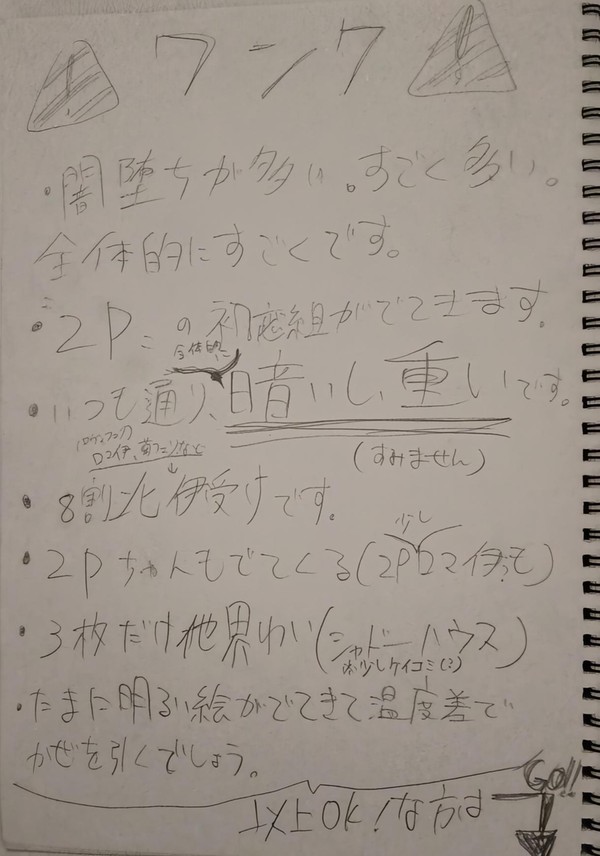 ワンク
・闇堕ちが多い。すごく多い。
全体的にすごくです。
・"2P"の初恋組がでてきます。
全体的に
・いつも通り、暗いし、重いです。
ロコ伊、菊フェリなど
(すみません)
・8割北伊受けです。
少し
・2Pちゃんもでてくる(2Pロマ伊も)
・3枚だけ他界わい(シャドーハウス)
・たまに明るい絵がでてきて温度差で
かぜを引くでしょう。
以上OK!な方は
GO!!